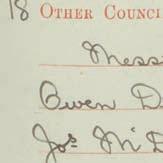 18 OTHER COUNCI
Mess
Owen D
Jos McD